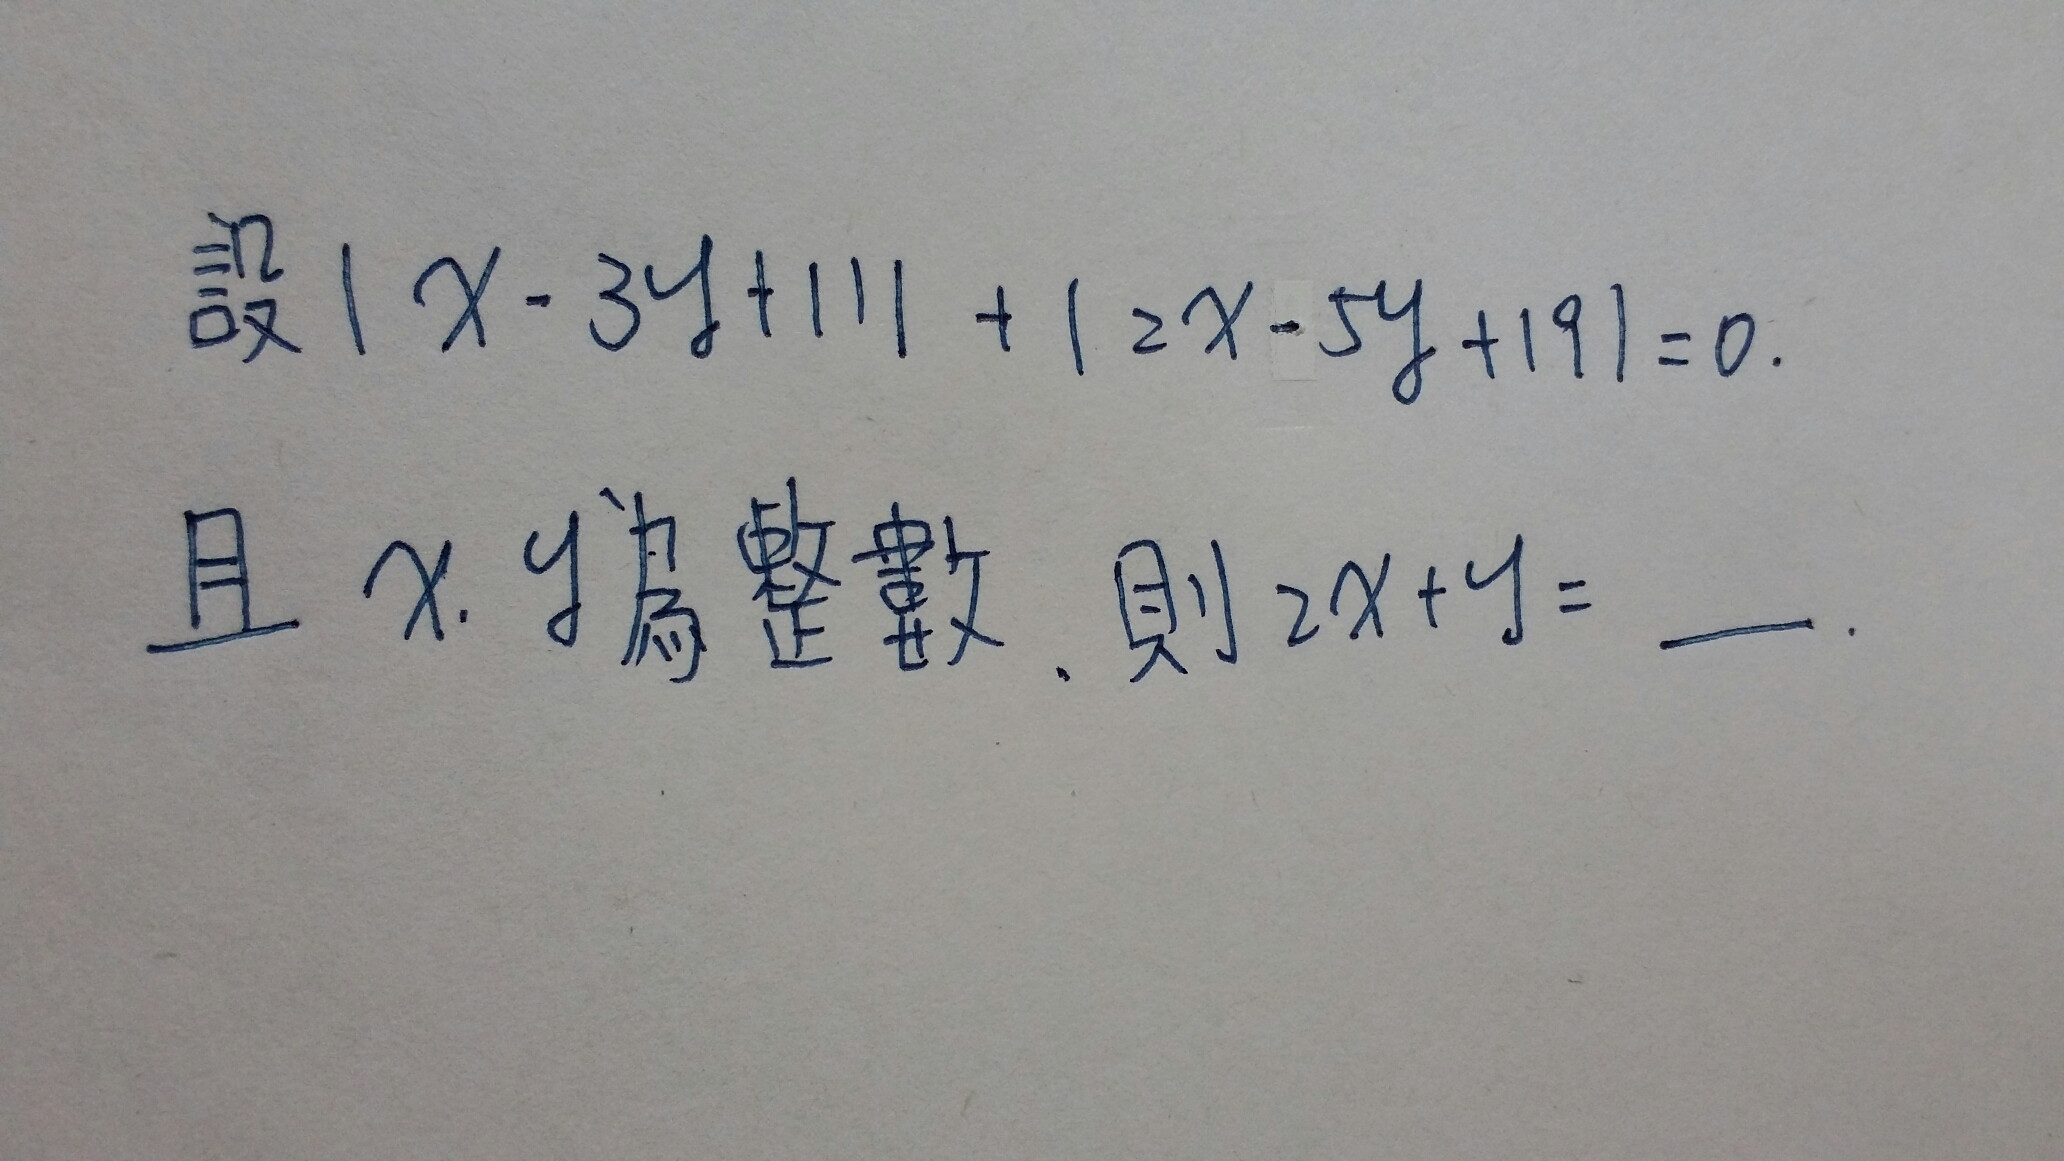 設|x-3y+11|+|2x-5y+19|=0.
且x.y為整數.則2x+y=__.